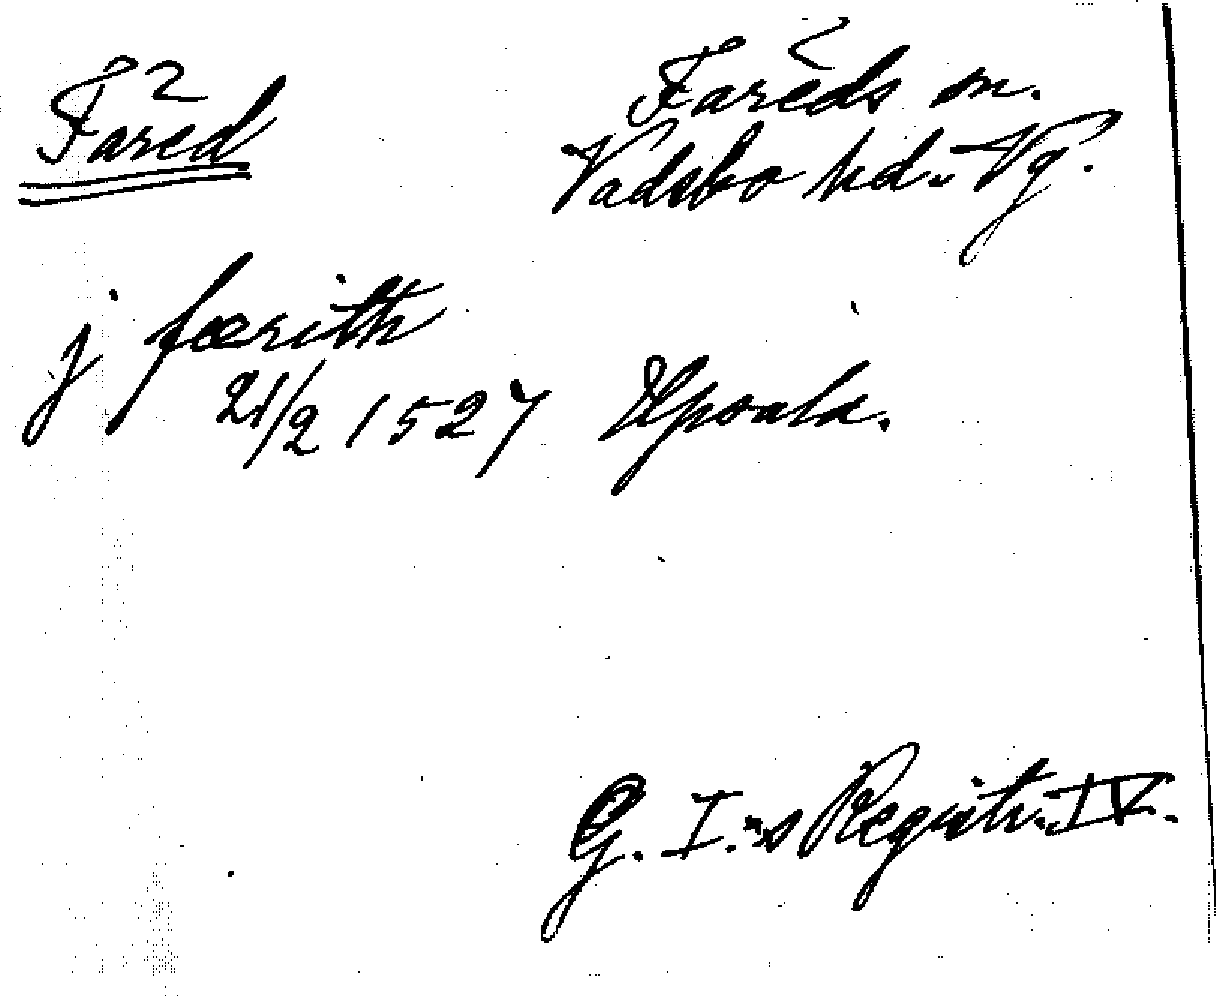 Fared
Fareds sn.
Vadsbo hd. Vg.
j fœrith
21/2 1527 Upsala.
G. I:s Registr. IV.